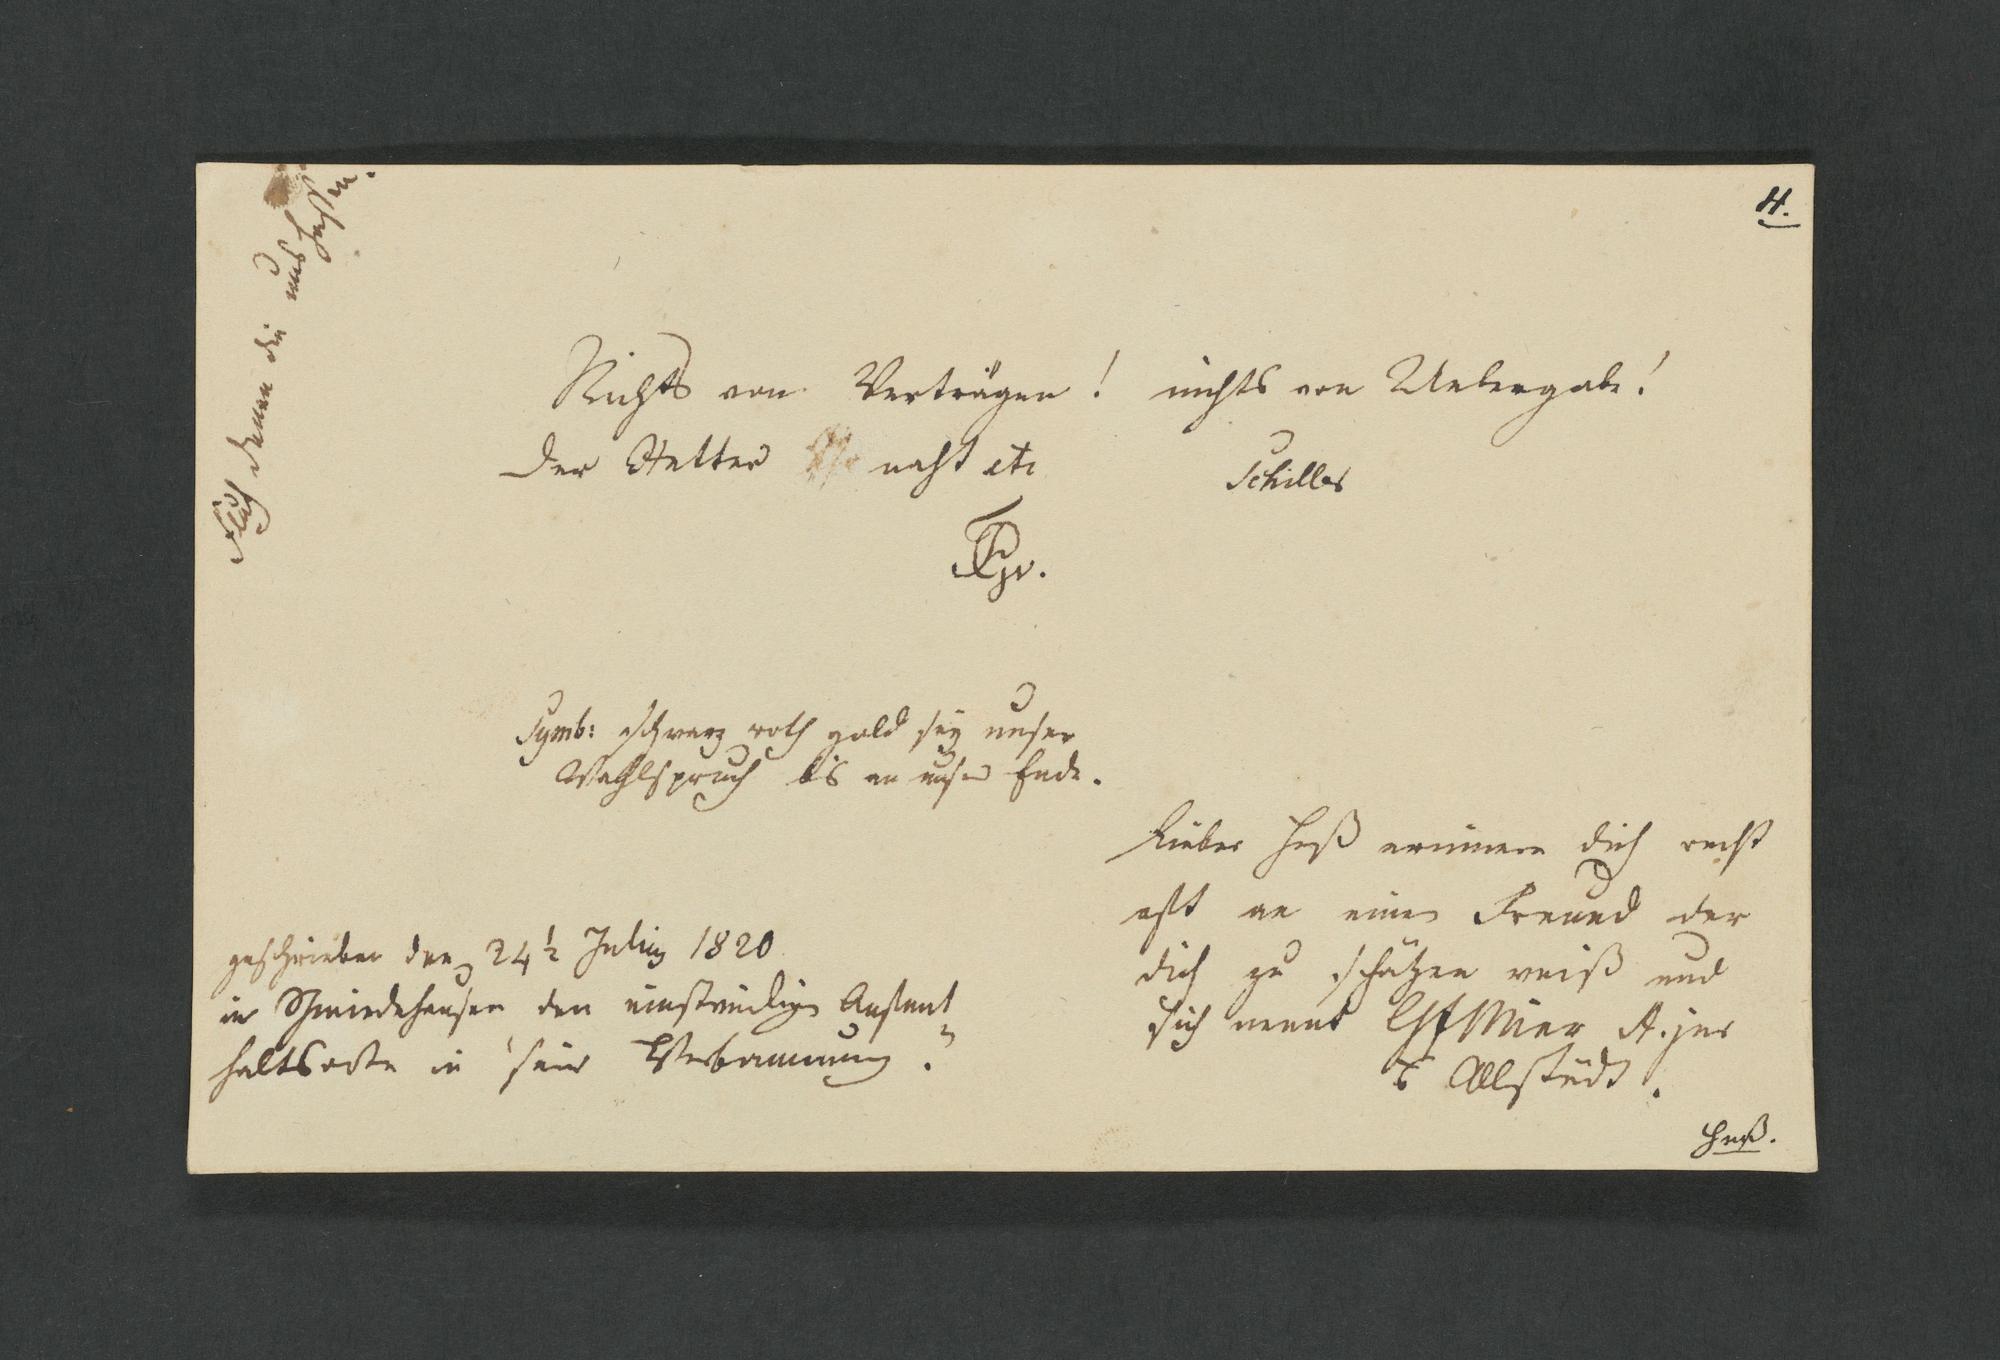 H.
Fluch denen die uns
Nichts von Verträgen! nichts von Uebergabe!
Der Retter naht etc
Schiller
Symb: schwarz roth gold sey unser
Wahlspruch bis an unser Ende.
Lieber Heß erinnere dich recht
oft an einen Freund der
dich zu schätzen weiß und
sich nennt A. jur
Allstedt.
geschrieben den 24t Julig 1820
in Schmiedehausen den einstweiligen Aufent
haltsorte in seiner Verbannung.
Heß.